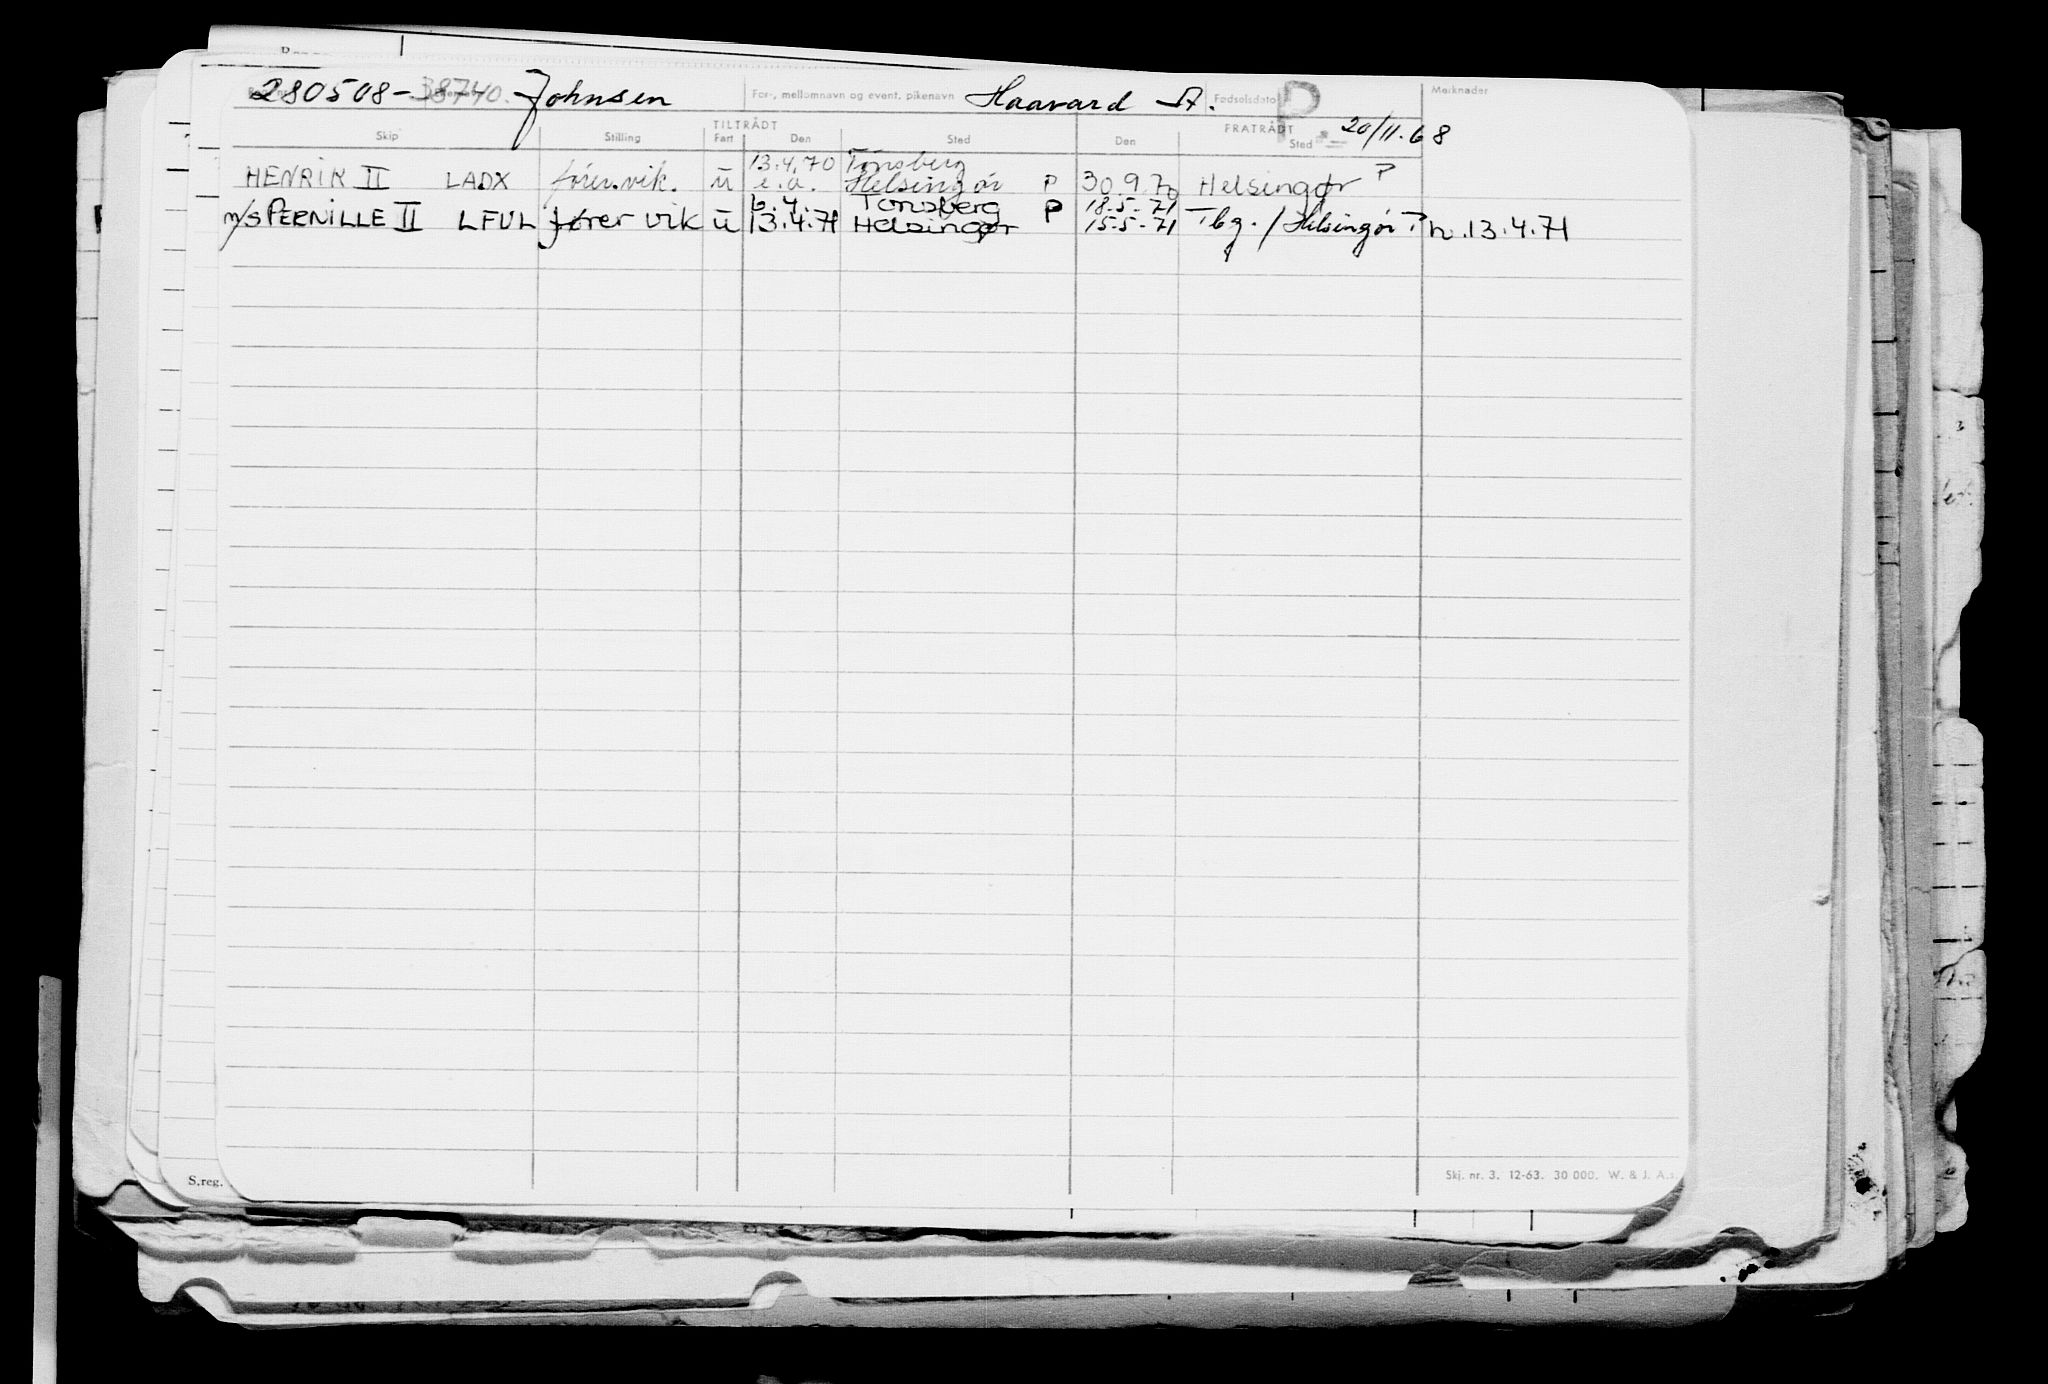 280508-38740. Johnsen For-, mellomnavn og event. pikenavn Haavard A. Fødselsdato P Merknader
TILTRÅDT FRATRÅDT 20/11.68
Skip Stilling Fart Den Sted Den Sted
13.4.70 Tönsberg
HENRIK II LADX fører.vik. u e.a. Helsingör P 30.9.70 Helsingør P
6.4. Tönsberg 18.5.71
m/s PERNILLE II LFUL fører vik u 13.4.71 Helsingør P 15.5.71 Tbg. / Helsingör P h.13.4.71
S.reg. Skj. nr. 3. 12-63. 30 000. W. & J. A.s.